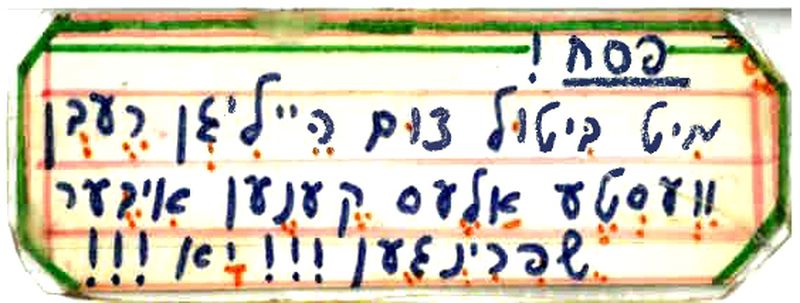 פסח!
מיט ביטול צום הייליגן רעבן
וועסטע אלעס קענען איבער
שפרינגען !!! יא !!!